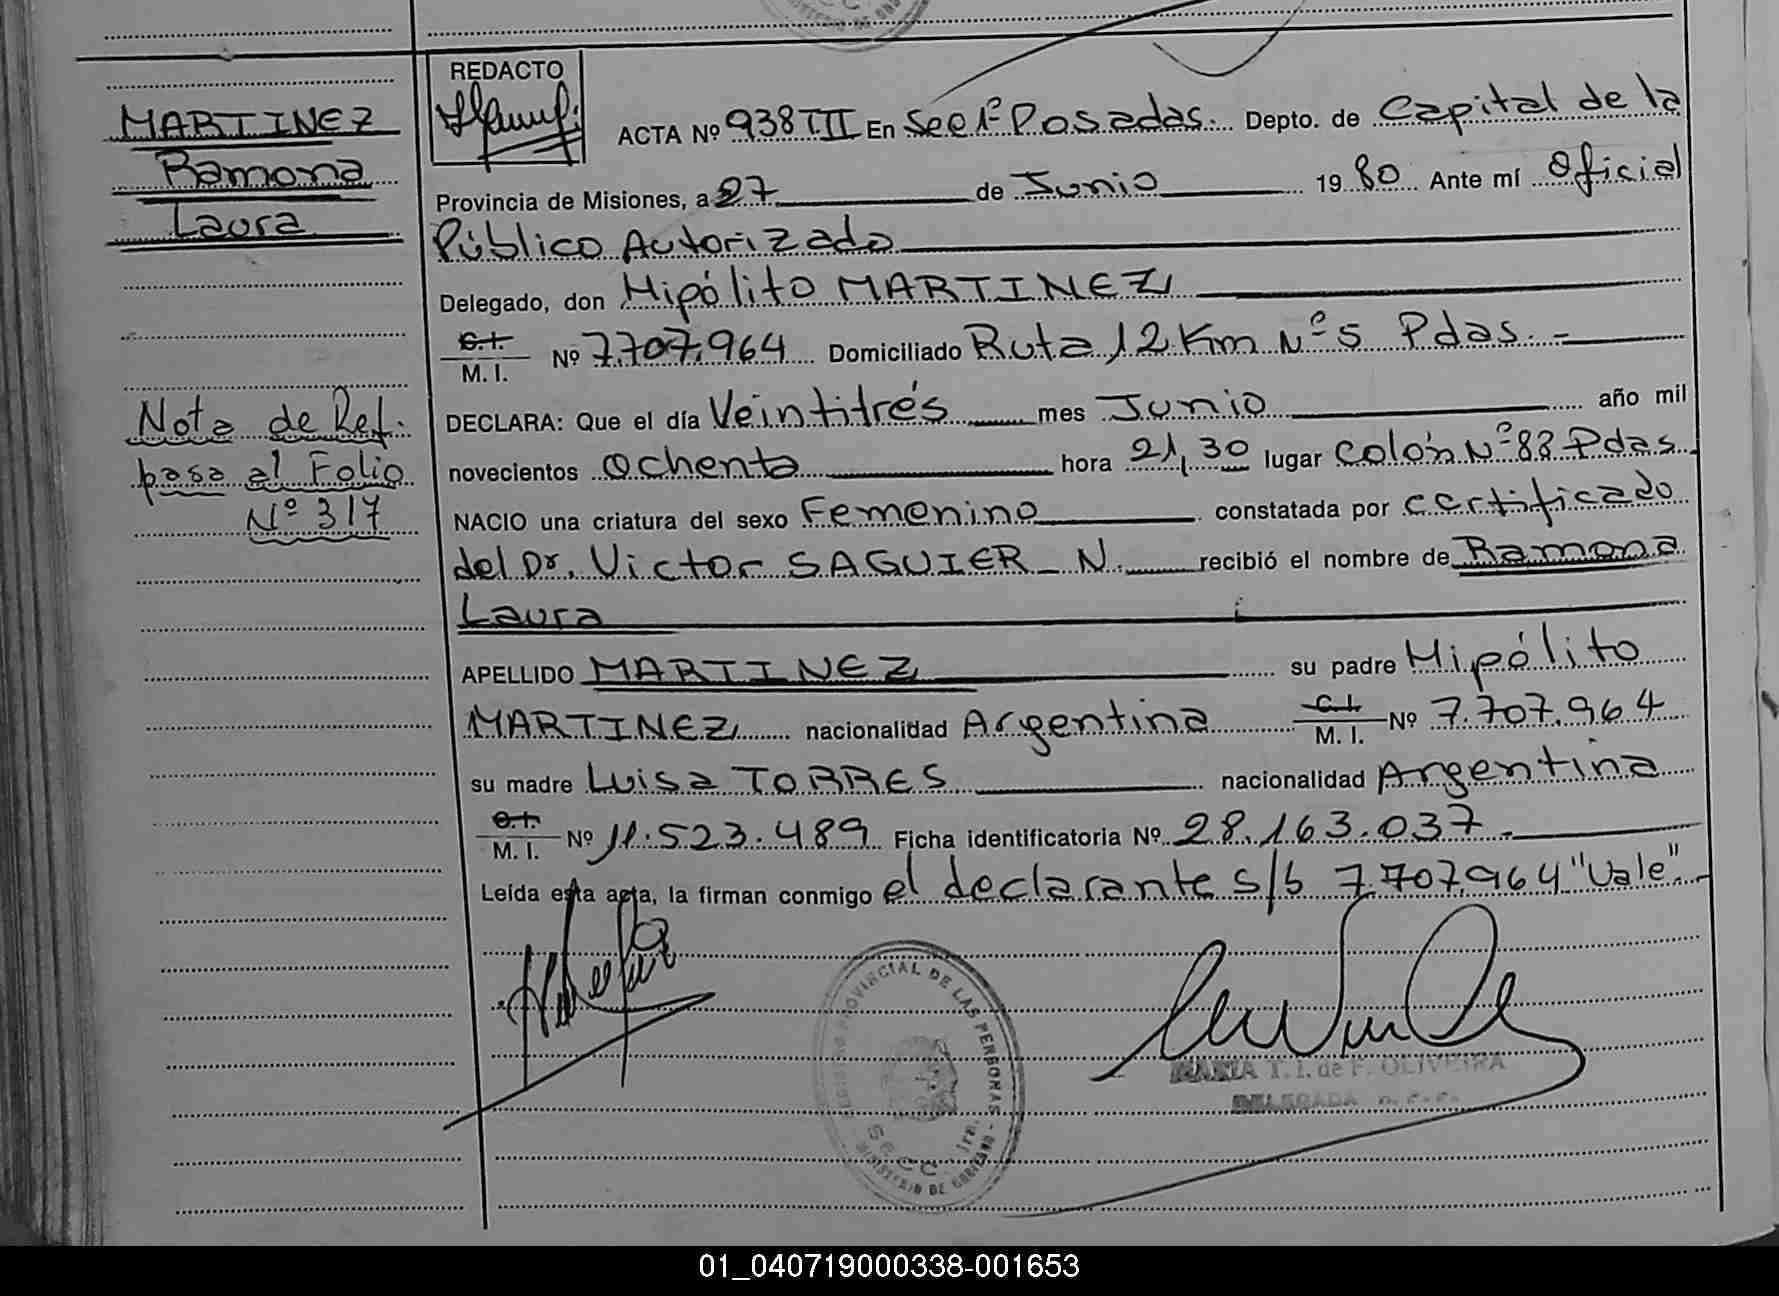 MARTINEZ
Ramona
Laura
Nota de Ref.
pasa al Folio
Nº 317
REDACTO
ACTA Nº 938 T.III En Secc 1º Posadas. Depto. de Capital de la
Provincia de Misiones, a 27 de Junio 19 80 Ante mí Oficial
Público Autorizado
Delegado, don Hipólito MARTINEZ
C.I.
M. I. Nº 7.707.964 Domiciliado Ruta 12 Km Nº 5 Pdas.-
DECLARA: Que el día Veintitrés mes Junio año mil
novecientos Ochenta hora 21,30 lugar Colón Nº 88 Pdas.
NACIO una criatura del sexo Femenino constatada por certificado
del Dr. Victor SAGUIER - N. recibió el nombre de Ramona
Laura
APELLIDO MARTINEZ su padre Hipólito
MARTINEZ nacionalidad Argentina C.I.
M. I. Nº 7.707.964
su madre Luisa TORRES nacionalidad Argentina
C.I.
M. I. Nº 11.523.489 Ficha identificatoria Nº 28.163.037.-
Leída esta acta, la firman conmigo el declarante s/b 7.707.964 "Vale".-
REGISTRO PROVINCIAL DE LAS PERSONAS
Secc. 1ra.
MINISTERIO DE GOBIERNO
MARIA T. I. de F. OLIVEIRA
DELEGADA
01_040719000338-001653